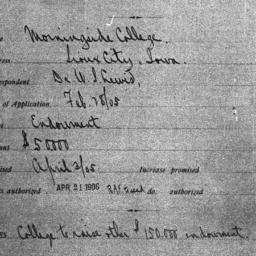 Morningside College.
ess Sioux City, Iowa.
espondent Dr. W. S. Lewis,
of Application. Feb. 28/05
Endowment
unt $50000
ised April 3/05 Increase promised
s authorized. APR 21 1906 do. authorized
ss College to raise other $150.000 endowment.